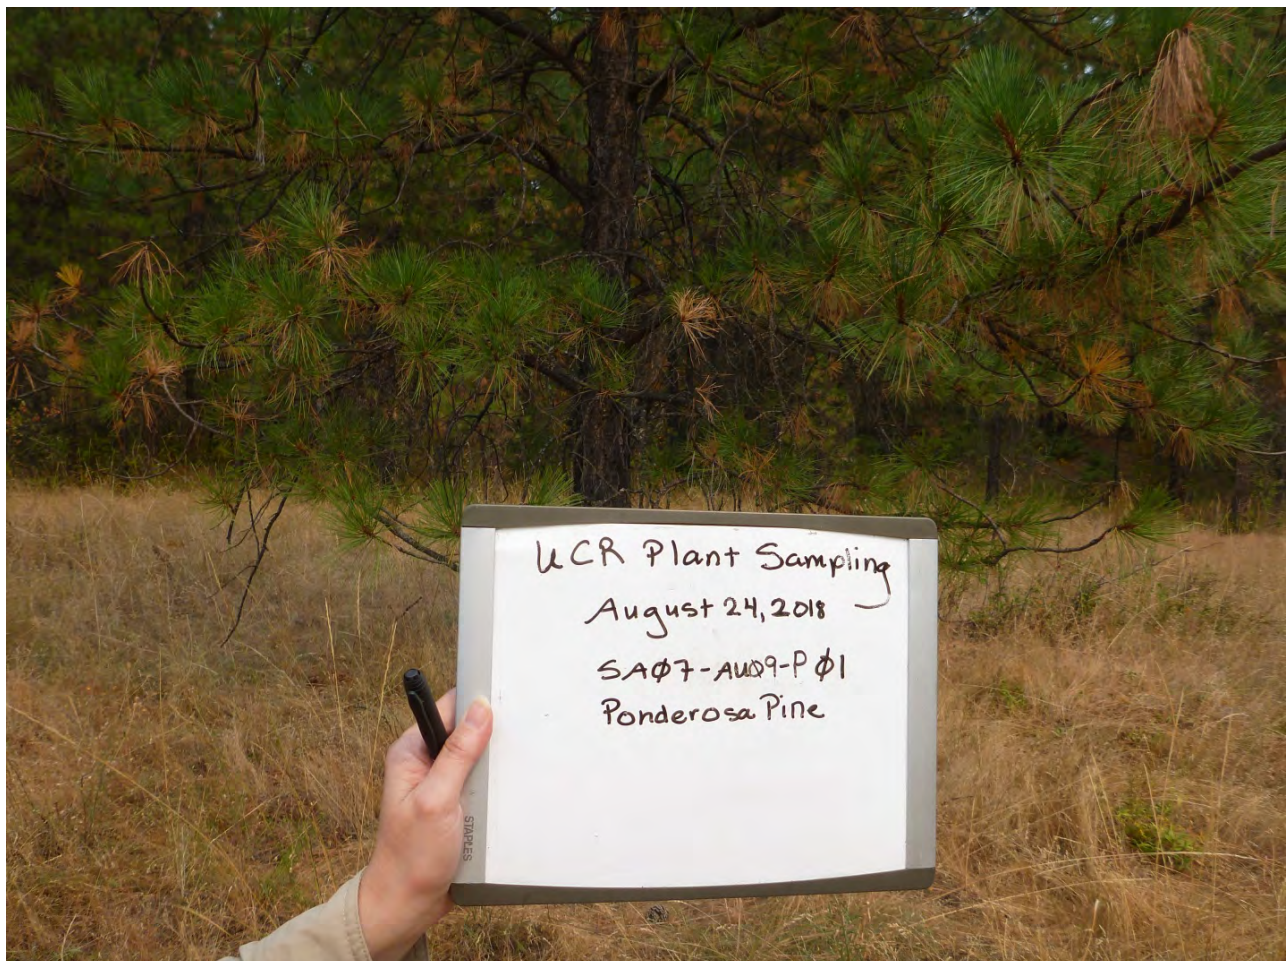 UCR Plant Sampling
August 24, 2018
SAØ7-AUØ9-PØ1
Ponderosa Pine
STAPLES